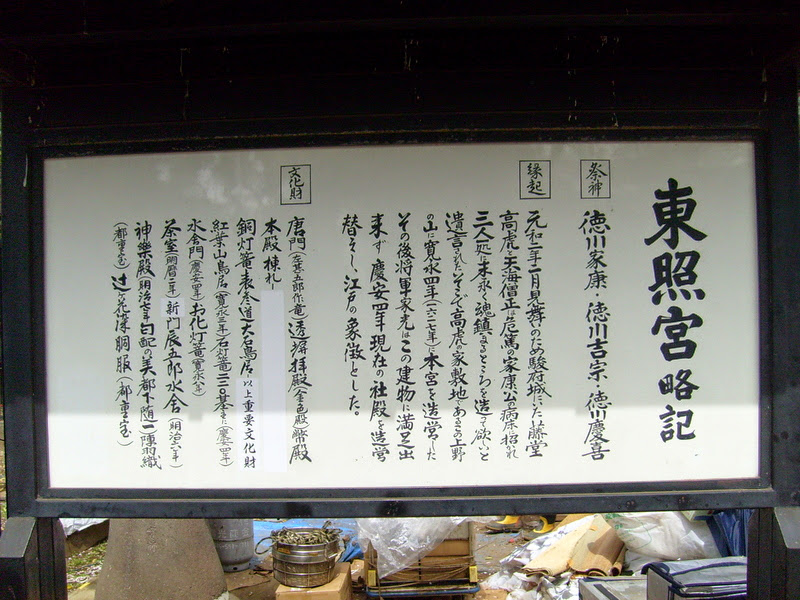 東照宮略記
祭神
徳川家康・徳川吉宗・徳川慶喜
縁起
元和二年二月見舞いのため駿府城にいた藤堂
高虎と天海僧正は危篤の家康公の病床に招かれ
三人一処に末永く魂鎮まるところを造って欲しいと
遺言された。そこで高虎の家敷地であるこの上野
の山に寛永四年(一六二七年)に本宮を造営した
その後将軍家光はこの建物に満足出
来ず慶安四年現在の社殿を造営
替えし、江戸の象徴とした。
文化財
唐門(左甚五郎作竜)透塀拝殿(金色殿)幣殿
本殿棟札
銅灯籠表参道大石鳥居 以上重要文化財
紅葉山鳥居(寛永三年)石灯籠二〇〇基(慶安四年)
水舎門(慶安四年)お化灯籠(寛永八年)
茶室(明暦二年)新門辰五郎水舎(明治七年)
神樂殿(明治七年)勾配の美都下随一陣羽織
(都重宝)辻ヶ花染胴服(都重宝)